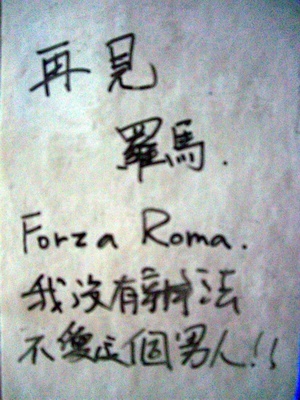 再見
羅馬.
Forza Roma.
我沒有辦法
不愛這個男人!!